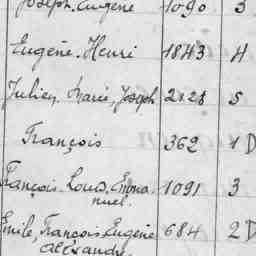 Joseph, Eugène 1090 3
Eugène, Henri 1843 4
Julien, Marie, Joseph 2128 5
François 362 1D
François, Louis, Emma- 1091 3
nuel.
Emile, François, Eugène 684 2D
Alexandre